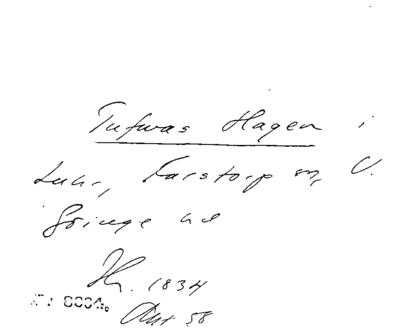 Tufwas Hagen i
Luhr, Farstorp sn, V.
Göinge hd
Th. 1834
:: 0004.
Ant 58